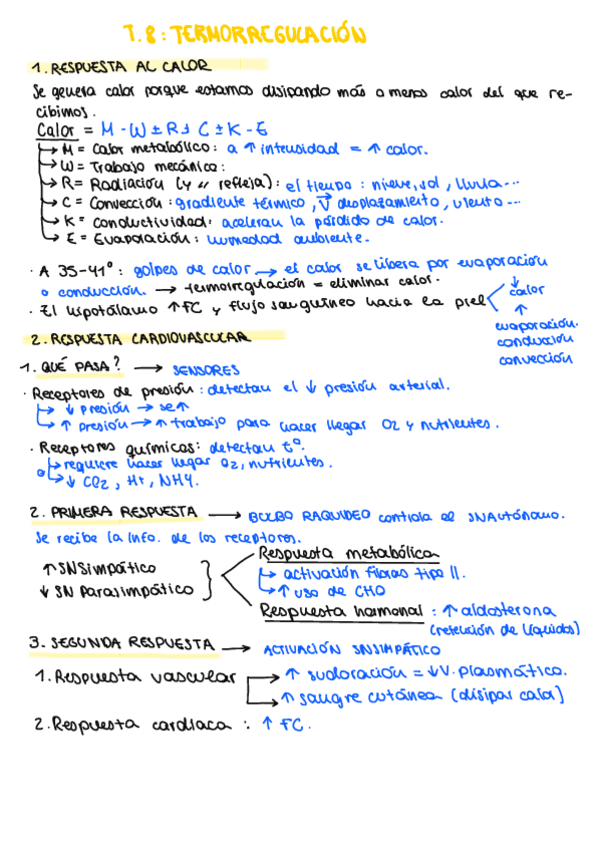 T.8: TERMORREGULACIÓN
1. RESPUESTA AL CALOR
Se genera calor porque estamos disipando más o menos calor del que re-
cibimos.
Calor = M - W ± R ± C ± K - E
M = Calor metabólico: a ↑ intensidad = ↑ calor.
W = Trabajo mecánico:
R = Radiación (y " refleja): el tiempo: nieve, sol, lluvia...
C = Convección: gradiente térmico, V desplazamiento, viento...
K = Conductividad: aceleran la pérdida de calor.
E = Evaporación: humedad ambiente.
· A 35-41º: golpes de calor → el calor se libera por evaporación
o conducción. → termorregulación = eliminar calor.
· El hipotálamo ↑FC y flujo sanguíneo hacia la piel
↓ calor
↑
evaporación.
conducción
convección
2. RESPUESTA CARDIOVASCULAR
1. QUÉ PASA? → SENSORES
· Receptores de presión: detectan el ↓ presión arterial.
↓ presión → se ↑
↑ presión → ↑ trabajo para hacer llegar O2 y nutrientes.
· Receptores químicos: detectan tº.
requiere hacer llegar O2, nutrientes.
↓ CO2, H+, NH4.
2. PRIMERA RESPUESTA → BULBO RAQUIDEO controla el SNAutónomo.
Se recibe la info. de los receptores.
Respuesta metabólica
↑ SNSimpático
activación fibras tipo II.
↓ SN Parasimpático
↑ uso de CHO
Respuesta hormonal: ↑ aldosterona
(retención de líquidos)
3. SEGUNDA RESPUESTA → ACTIVACIÓN SNSIMPÁTICO
1. Respuesta vascular
↑ sudoración = ↓V. plasmático.
↑ sangre cutánea (disipar calor)
2. Respuesta cardíaca: ↑ FC.